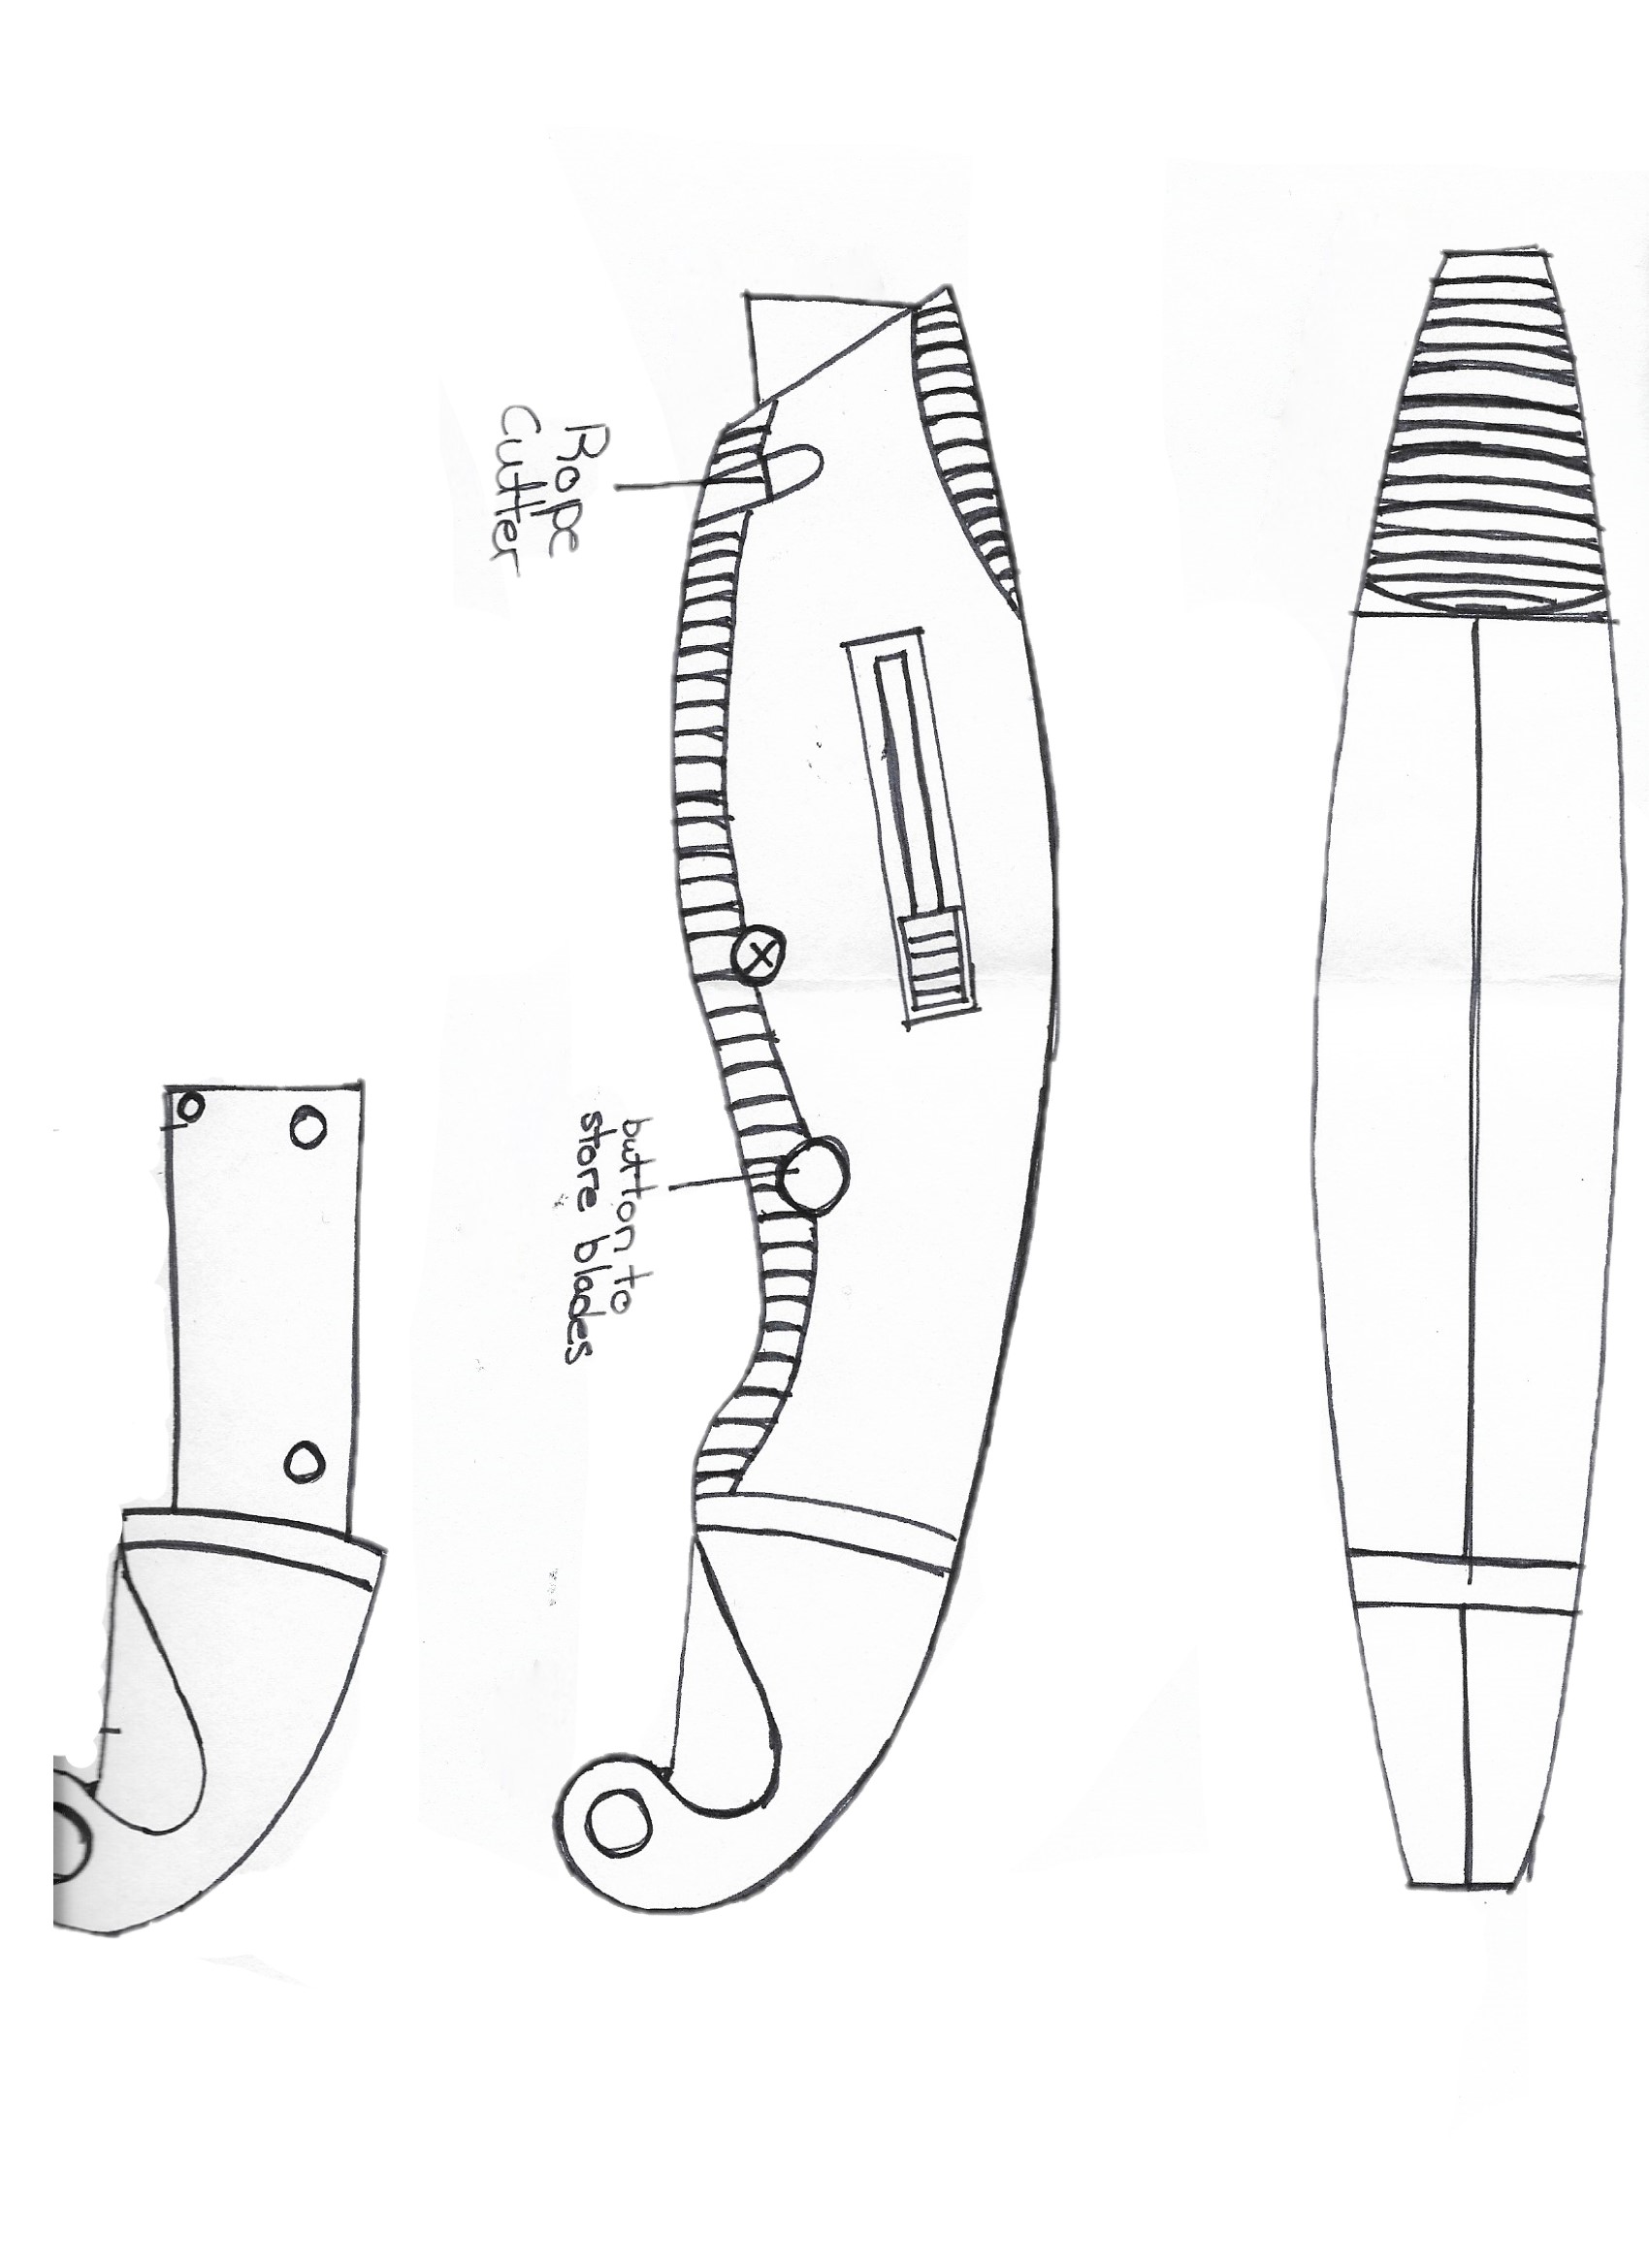 Rope
cutter
button to
store blades